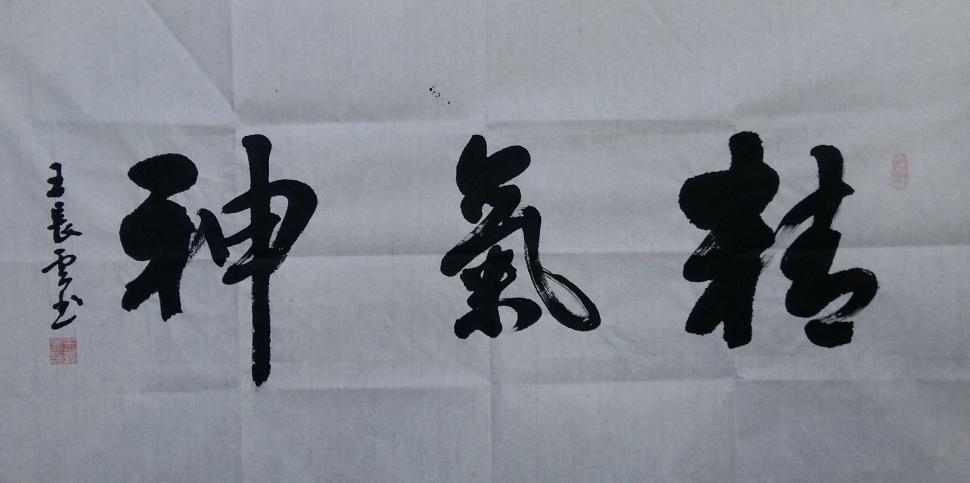 精氣神
王長雲书